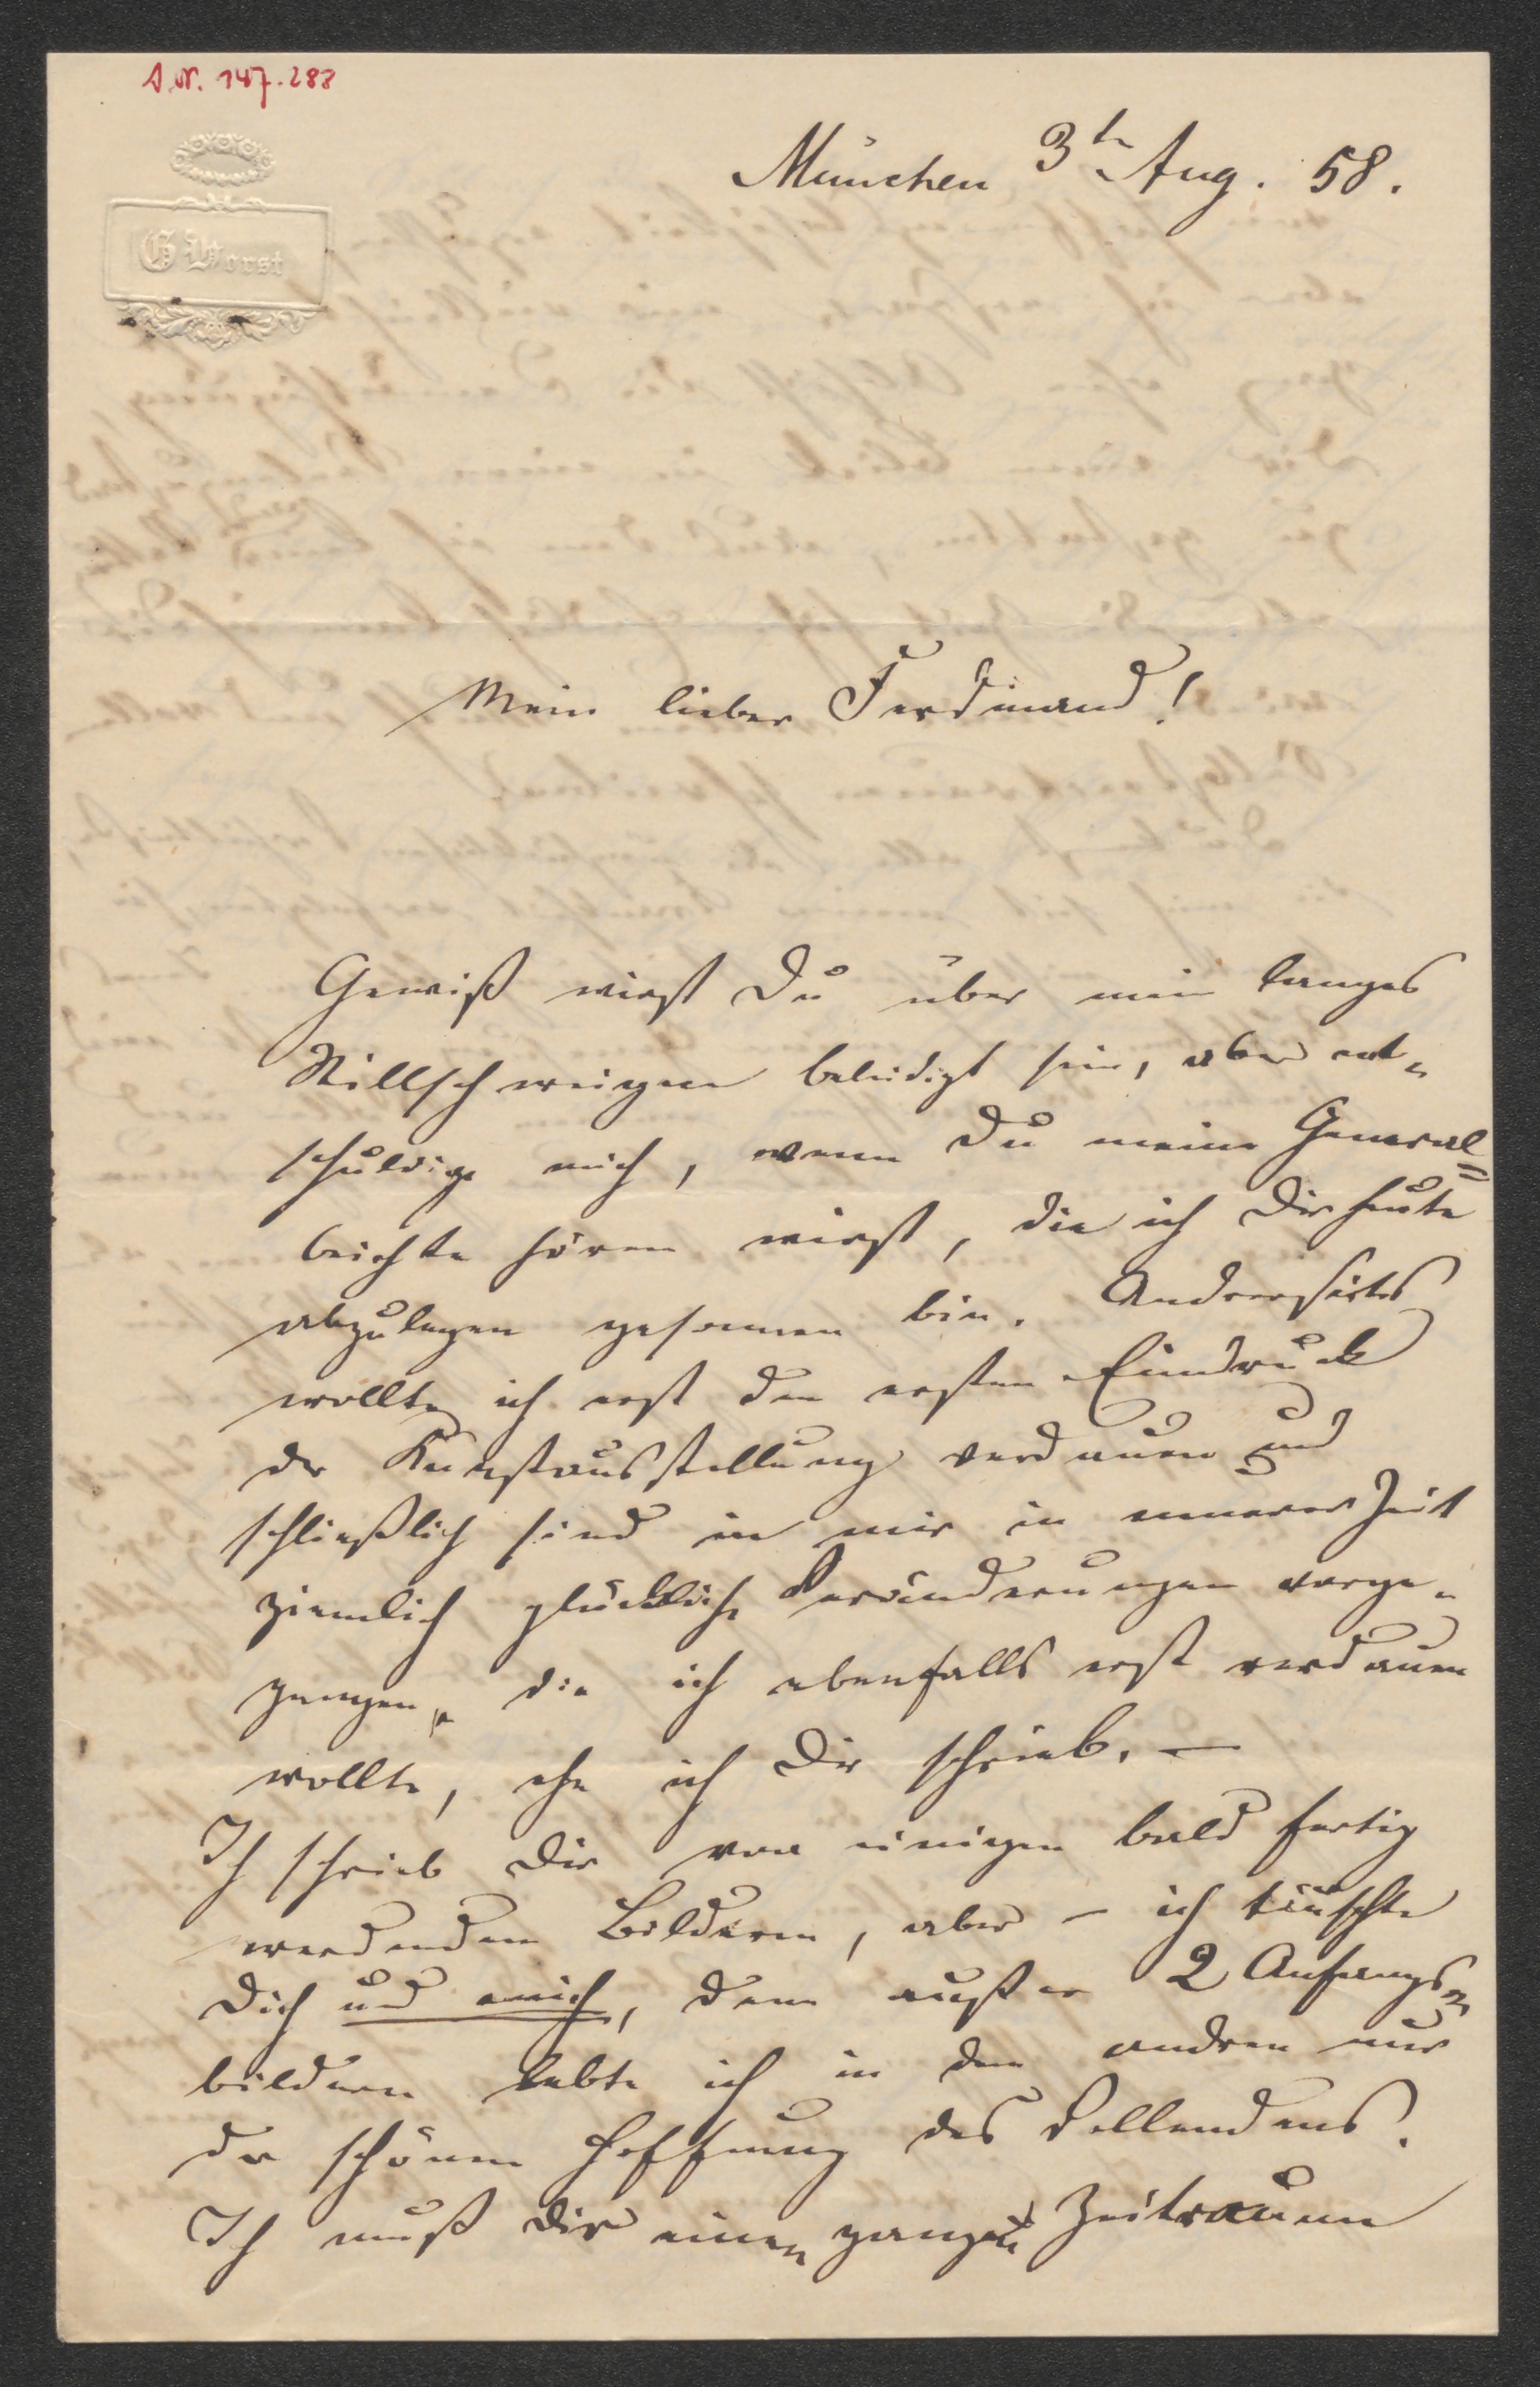 A.N. 147.288
G Worst
München 3t Aug. 58.
Mein lieber Ferdinand!
Gewiß wirst Du über mein langes
Stillschweigen beleidigt sein, aber ent-
schuldige mich, wenn Du meine General=
beichte hören wirst, die ich Dir heute
abzulegen gesonnen bin. Anderseits
wollte ich erst den ersten Eindruck
der Kunstausstellung verdauen und
schließlich sind in mir in neuerer Zeit
ziemlich glückliche Veränderungen vorge-
gangen, die ich ebenfalls erst verdauen
wollte, ehe ich Dir schrieb. —
Ich schrieb Dir von einigen bald fertig
werdenden Bildern, aber – ich täuschte
Dich und mich, denn außer 2 Anfangs=
bildern lebte ich in den andren nur
der schönen Hoffnung des Vollendens.
Ich muß Dir einen ganzen Zeitraum